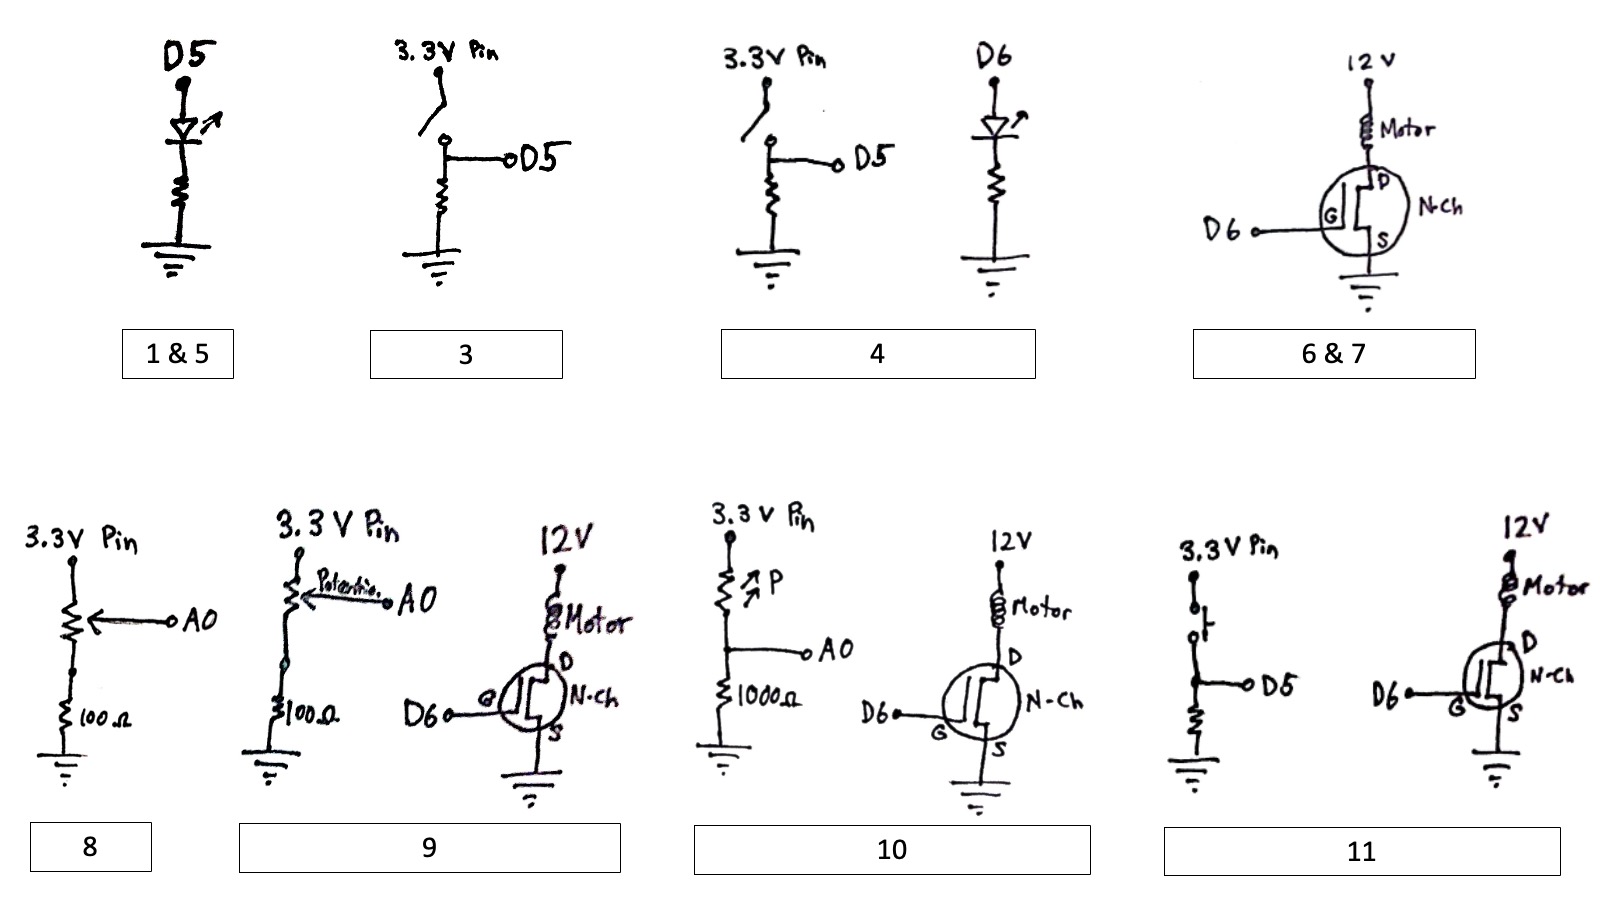 D5
3.3V Pin
D5
1 & 5
3
3.3V Pin
D5
D6
4
12 V
Motor
D
G
N-Ch
D6
S
6 & 7
3.3V Pin
A0
100Ω
8
3.3V Pin
Potentio.
A0
100Ω
12V
Motor
D
G
N-Ch
D6
S
9
3.3V Pin
P
A0
1000Ω
12V
Motor
D
N-Ch
D6
G
S
10
3.3V Pin
D5
12V
Motor
D
N-Ch
D6
G
S
11